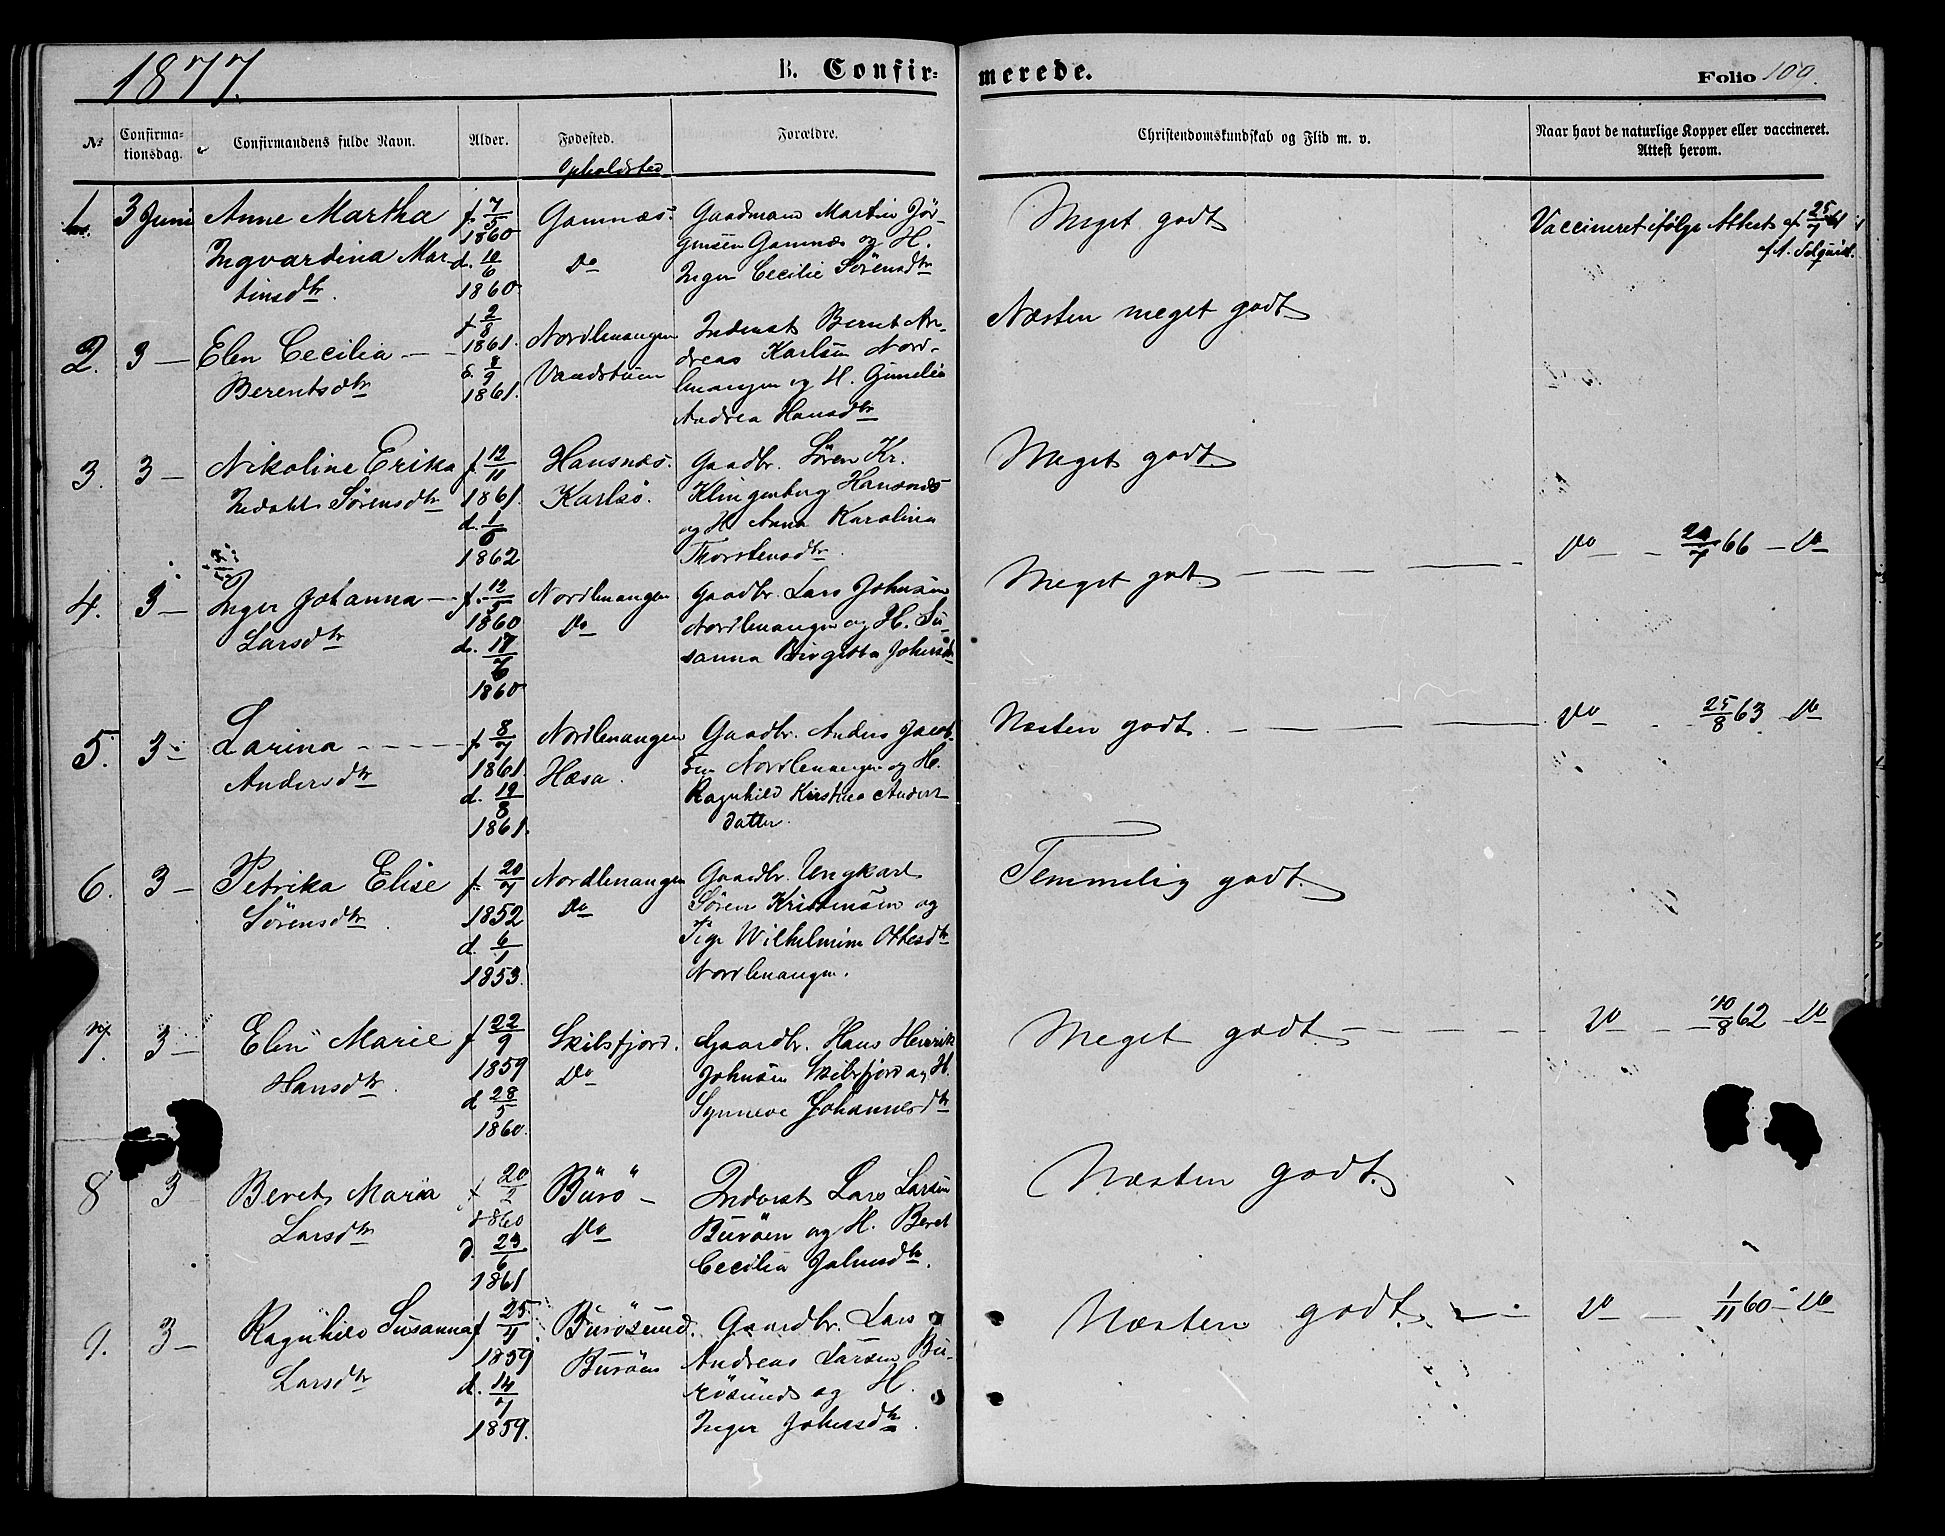 1877.
B. Confir=
merede.
Folio 109.
№
Confirma-
tionsdag.
Confirmandens fulde Navn.
Alder.
Fødested.
Opholdsted
Forældre.
Christendomskundskab og Flid m. v.
Naar havt de naturlige Kopper eller vaccineret.
Attest herom.
1. 3 Juni
Anne Martha
Ingvardina Mar-
tinsdtr.
f. 7/5
1860
d. 10/6
1860.
Gamnæs.
Do
Gaadmand Martin Jør-
gensen Gamnæs og H.
Inger Cecilie Sørensdtr
Meget godt
Vaccineret ifølge Attest af 25/7 61
af A.
2. 3 —
Elen Cecilia —
Berentsdtr
f 2/8
1861.
d. 8/9
1861.
Nordlenangen
Vandstuen
Inderst Bernt An-
dreas Karlsen Nord-
lenangen og H. Gunelia
Andrea Hansdtr
Næsten meget godt
3. 3 —
Nikoline Erika
Sørensdtr
f. 12/11
1861.
d. 1/6
1862
Hansnæs.
Karlsø.
Gaadbr. Søren Kr.
Klingenberg Hansnæs
og H. Anna Karolina
Thorstensdtr.
Meget godt.
4. 3 —
Inger Johanna —
Larsdtr
f. 12/5
1860
d. 17/6
1860
Nordlenangen
Do
Gaadbr. Lars Johnsen
Nordlenangen og H. Su-
sanna Birgitta Johnsdtr
Meget godt. — — —
Do — 20/7 66 — Do
5. 3 —
Larina — — —
Andersdtr
f. 8/7
1861.
d. 19/8
1861.
Nordlenangen
Hæsa.
Gaadbr. Anders Jacob-
sen Nordlenangen og H.
Ragnhild Kirstina Anders
datter.
Næsten godt. — — —
Do — 25/8 63 — Do
6. 3 —
Petrika Elise
Sørensdtr.
f. 20/7
1852
d. 6/1
1853.
Nordlenangen
Do
Gaardbr. Ungkarl
Søren Kristensen og
Pige Wilhelmine Ottesdtr
Nordlenangen.
Temmelig godt.
7. 3 —
Elen Marie
Hansdtr.
f 22/9
1859
d 28/5
1860.
Skibsfjord.
Do
Gaardbr. Hans Henrik
Johnsen Skibsfjord og H.
Synneve Johannesdtr
Meget godt — — —
Do — 10/8 62 — Do
8 3
Beret Maria
Larsdtr
f 20/2
1860
d. 23/6
1861
Burø —
Do
Inderst Lars Larsen
Burøen og H. Beret
Cecilia Johnsdtr.
Næsten godt.
9. 3 —
Ragnhild Susanna
Larsdtr
f 25/4
1859
d. 14/7
1859.
Burøsund.
Burøen
Gaardbr. Lars
Andreas Larsen Bu-
røsund og H.
Inger Johnsdtr.
Næsten godt. — —
Do — 1/11 60 — Do